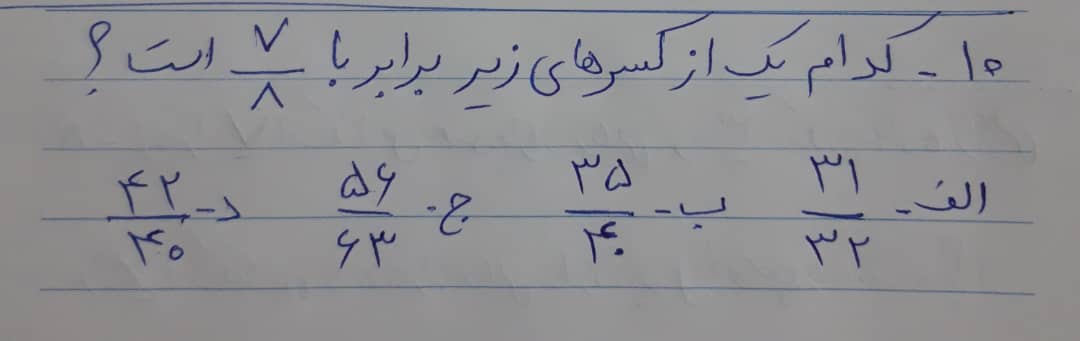 ۱۰ - کدام یک از کسرهای زیر برابر با ۷/۸ است ؟
الف - ۳۱/۳۲ ب - ۳۵/۴۰ ج - ۵۶/۶۳ د - ۴۲/۴۰